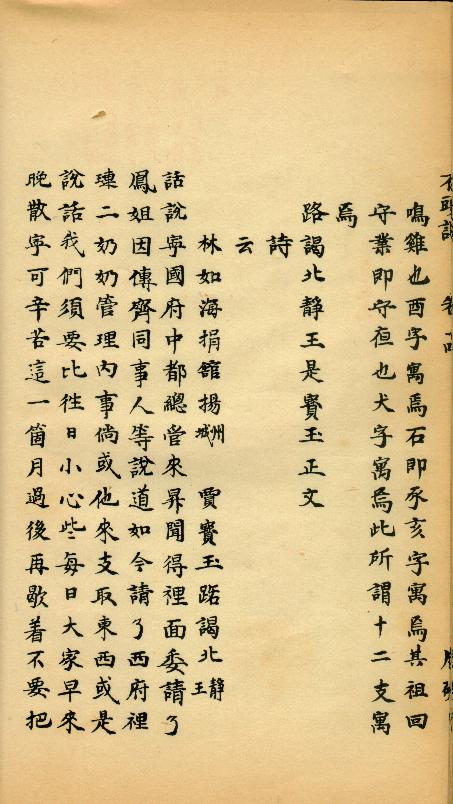 石頭記 卷十四
鳴雞也酉字寓焉石即豕亥字寓焉其祖回
守業即守夜也犬字寓焉此所謂十二支寓
焉
路謁北静王是寳玉正文
詩
云
林如海捐舘揚州城 賈寳玉路謁北静王
話說寧國府中都總管來昇聞得裡面委請了
鳳姐因傳齊同事人等說道如今請了西府裡
璉二奶奶管理內事倘或他來支取東西或是
說話我們須要比徃日小心些每日大家早來
晚散寧可辛苦這一箇月過後再歇着不要把